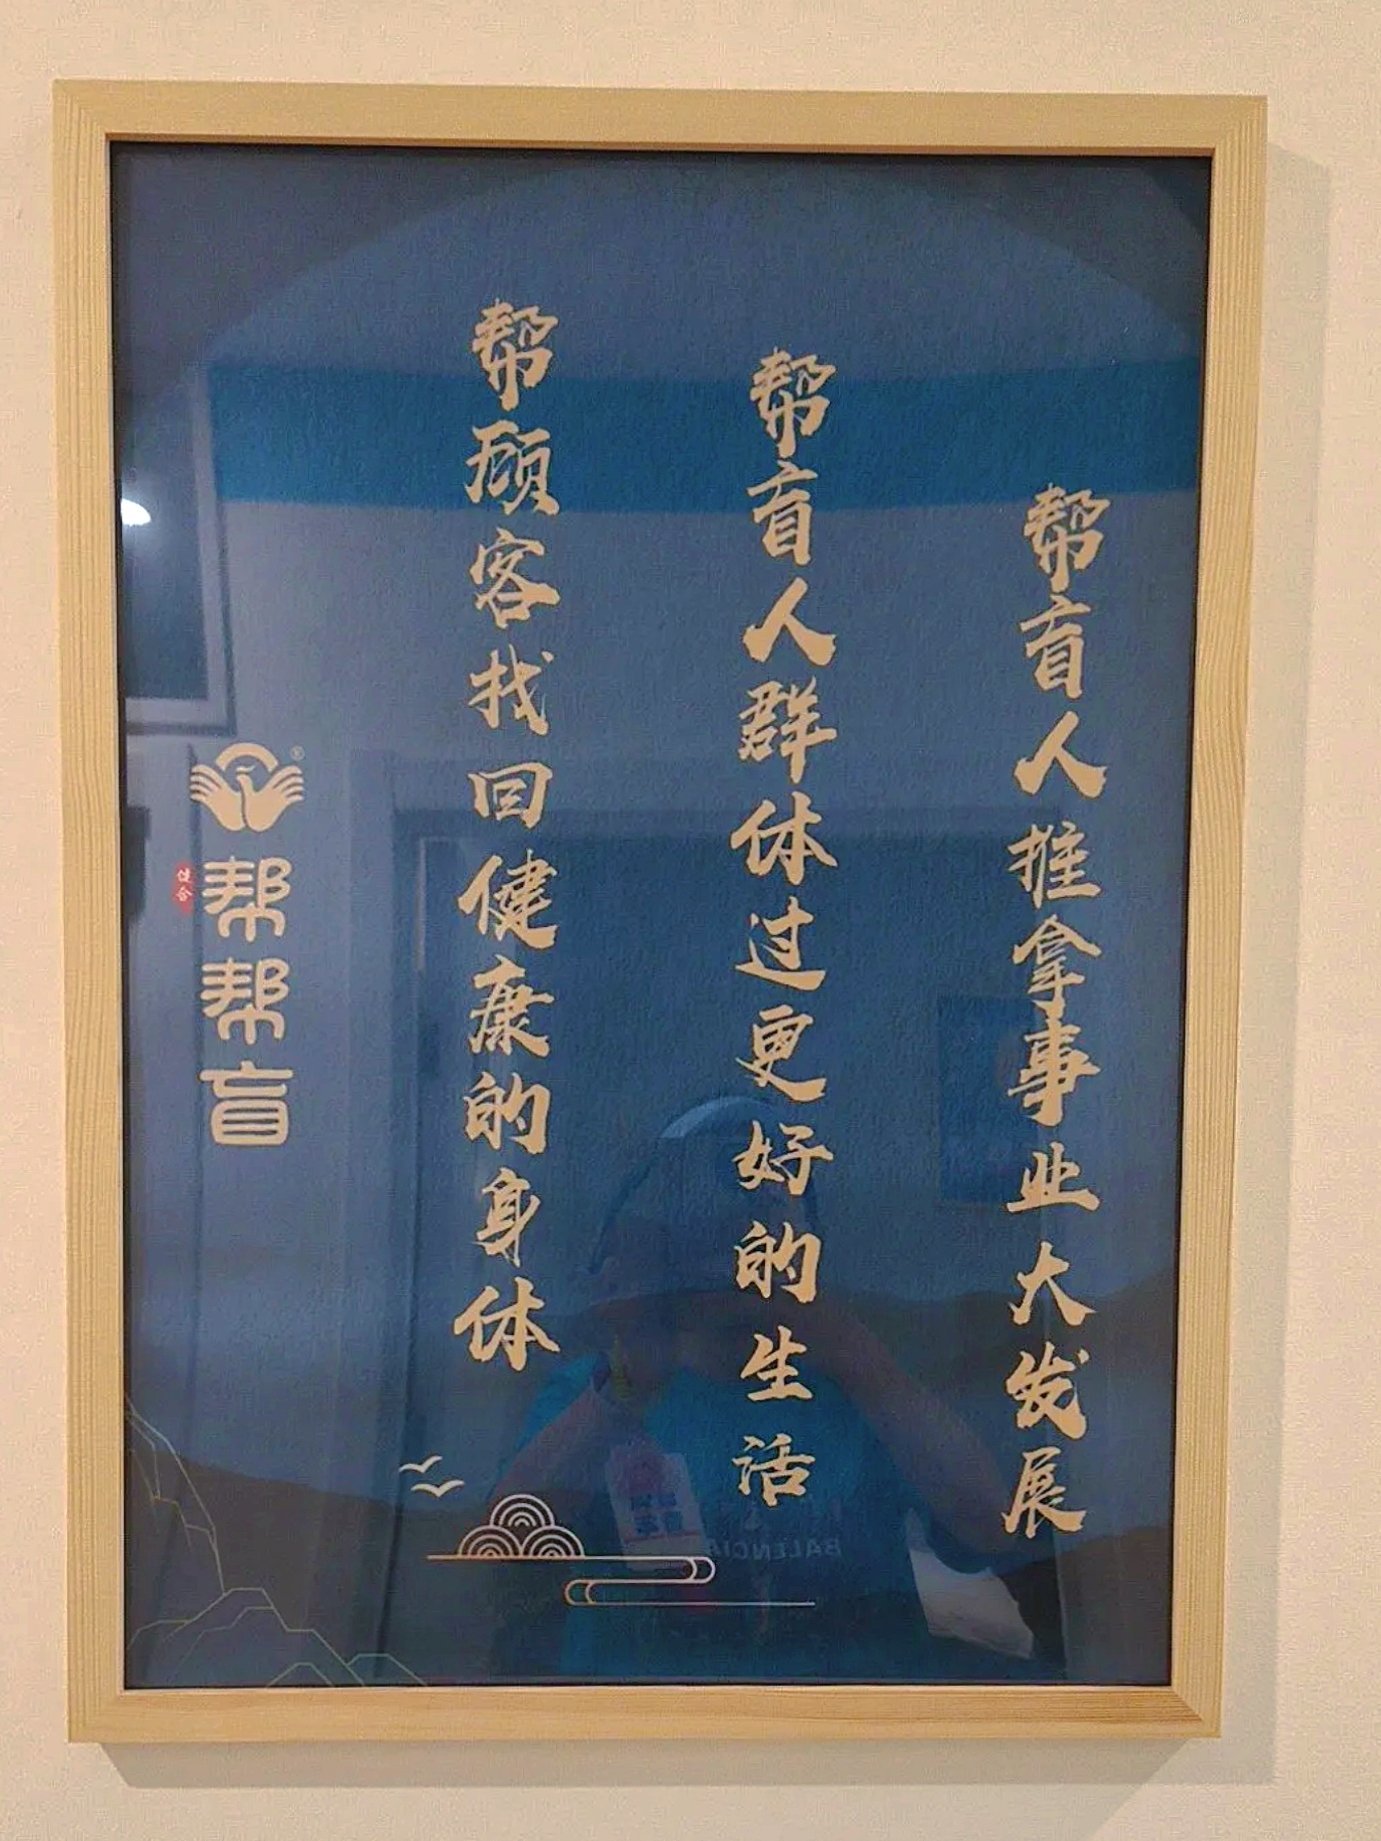 帮盲人推拿事业大发展
帮盲人群体过更好的生活
帮顾客找回健康的身体
®
帮帮盲
健合
BALENCIA